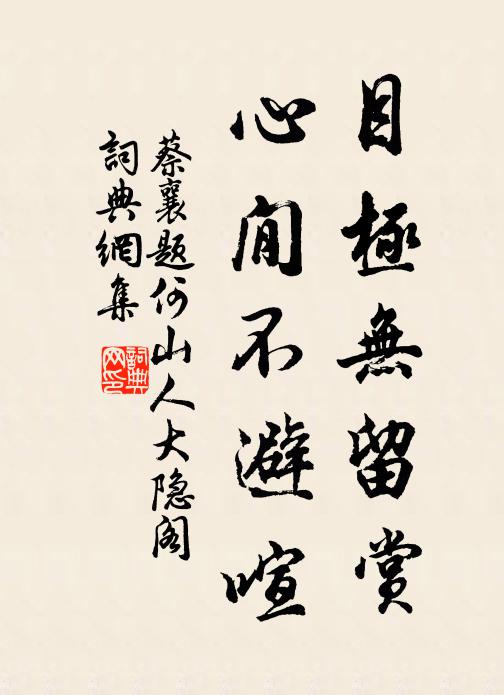 目極無留賞
心閒不避喧
蔡襄题何山人大隐阁
詞典網集
詞典网印